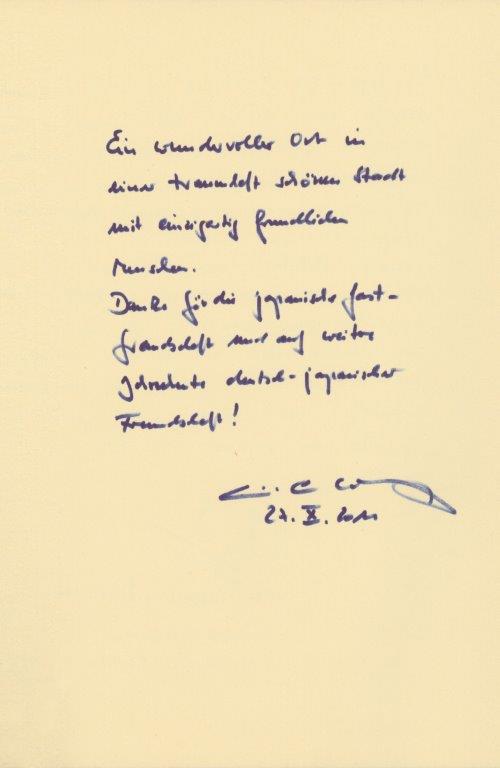 Ein wundervoller Ort in
einer traumhaft schönen Stadt
mit einzigartig freundlichen
Menschen.
Danke für die japanische Gast-
freundschaft und auf weitere
Jahrzehnte deutsch-japanischer
Freundschaft!
27. X. 2011